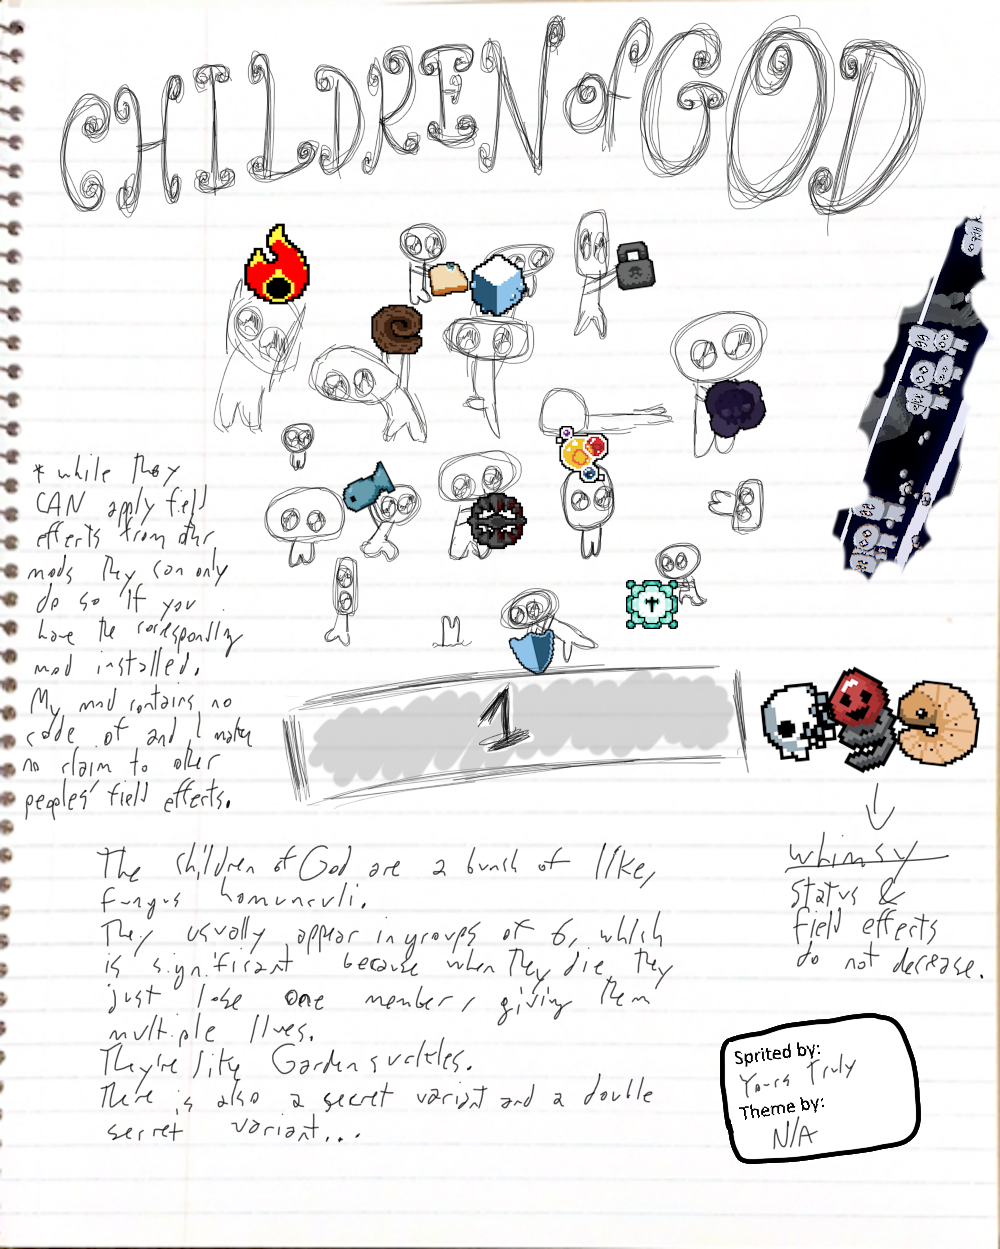 CHILDREN of GOD
* while they
CAN apply field
effects from other
mods they can only
do so if you
have the corresponding
mod installed.
My mod contains no
code of and I make
no claim to other
peoples' field effects.
1
whimsy
status &
field effects
do not decrease.
The children of God are a bunch of like,
fungus homunculi.
They usually appear in groups of 6, which
is significant because when they die they
just lose one member, giving them
multiple lives.
They're like Garden suckles.
There is also a secret variant and a double
secret variant...
Sprited by:
Yours Truly
Theme by:
N/A